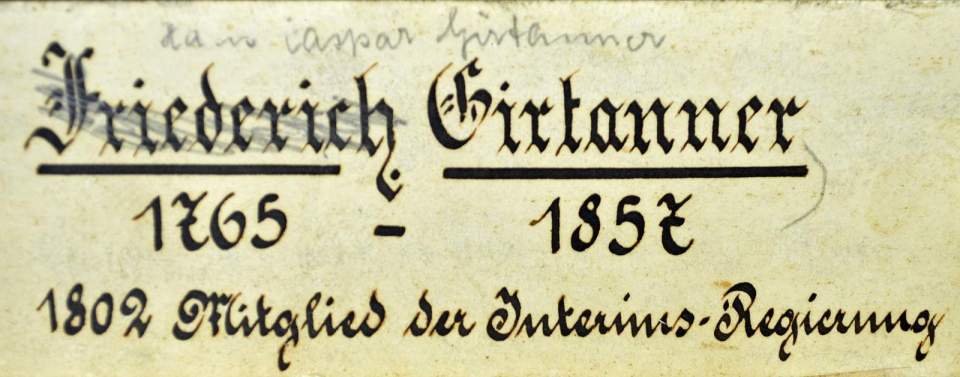 Caspar Girtanner
Friederich Girtanner
1765 - 1857
1802 Mitglied der Interims-Regierung